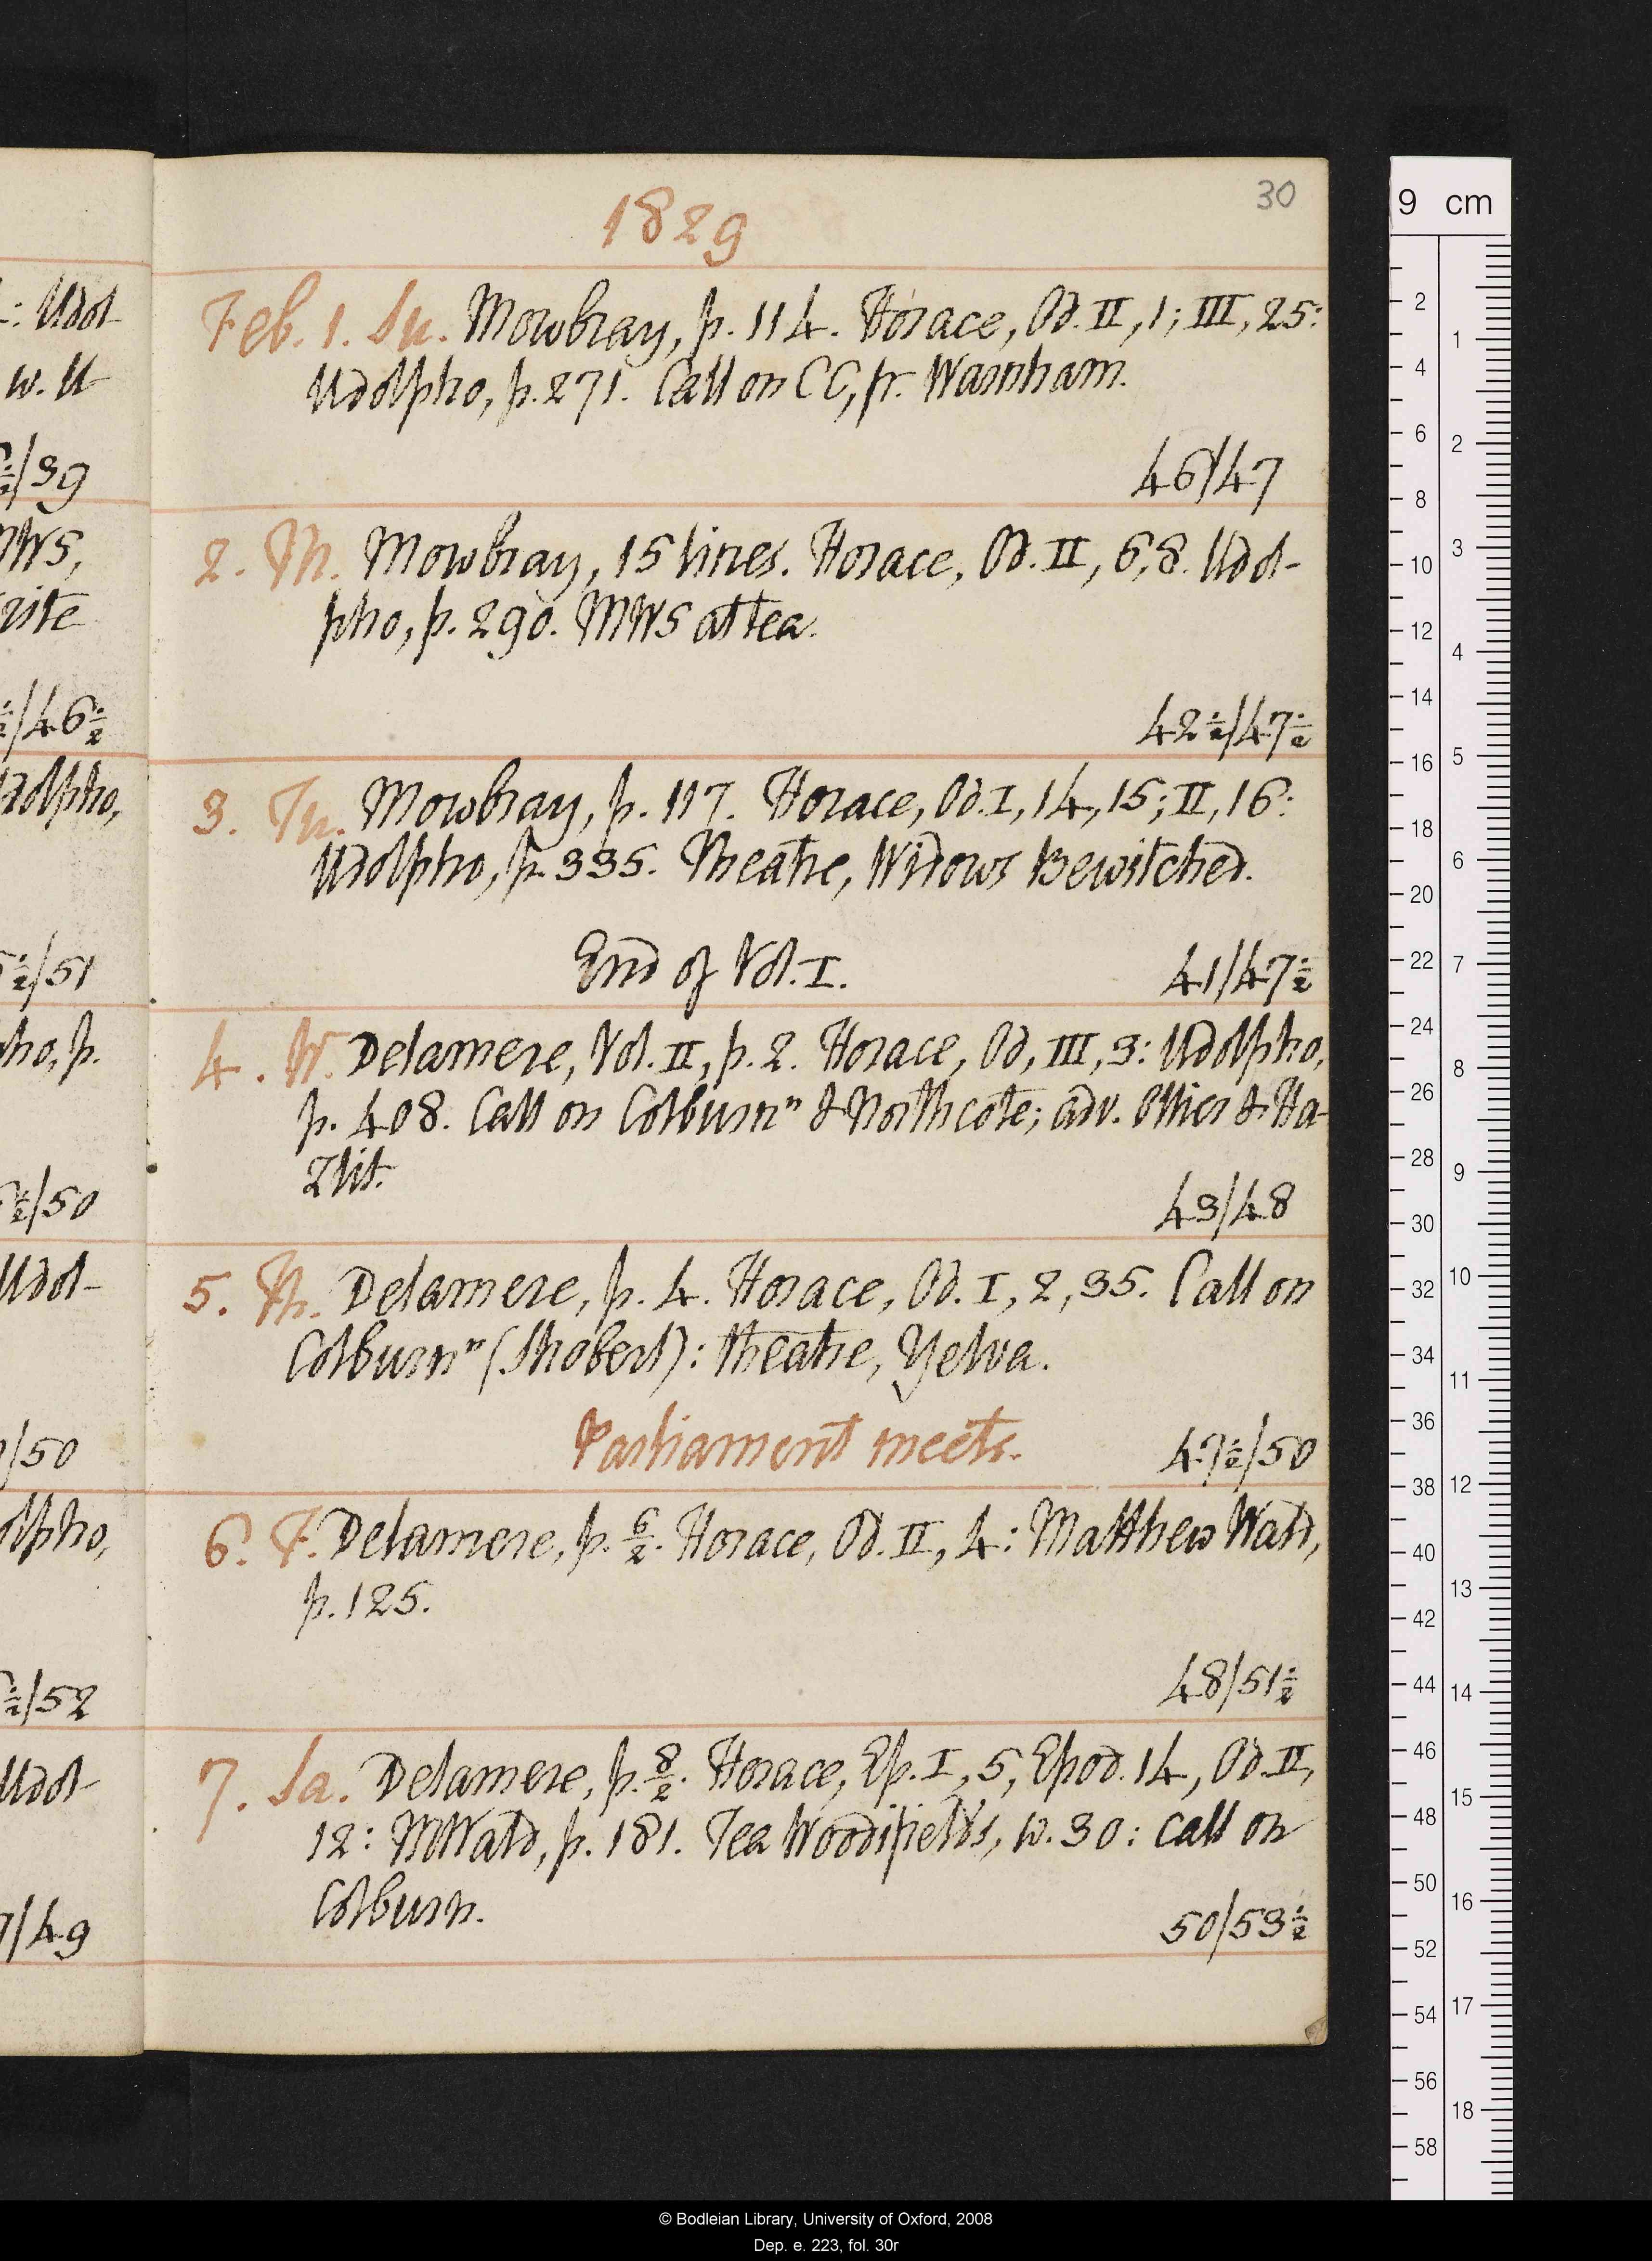 30
1829
Feb. 1. Su. Mowbray, p. 114. Horace, Od. II, 1; III, 25:
Udolpho, p. 271. Call on CC, fr. Warnham.
46/47
2. M. Mowbray, 15 lines. Horace, Od. II, 6, 8. Udol-
pho, p. 290. MWS at tea.
42½/47½
3. Tu. Mowbray, p. 117. Horace, Od. I, 14, 15; II, 16:
Udolpho, p. 335. Theatre, Widows Bewitched.
End of Vol. I.
41/47½
4. W. Delamere, Vol. II, p. 2. Horace, Od, III, 3: Udolpho,
p. 408. Call on Colburnⁿ & Northcote; adv. Ollier & Ha-
zlit.
43/48
5. Th. Delamere, p. 4. Horace, Od. I, 2, 35. Call on
Colburnⁿ (Shobert): theatre, Yelva.
Parliament meets.
47½/50
6. F. Delamere, p. 6/2. Horace, Od. II, 4: Matthew Wald,
p. 125.
48/51½
7. Sa. Delamere, p. 8/2. Horace, Ep. I, 5, Epod. 14, Od. II,
12: MWald, p. 181. Tea Woodifield's, w. 30: call on
Colburn.
50/53½
: Udol-
w. U
½/39
MWS,
rite
½/46½
Udolpho,
½/51
pho, p.
½/50
Udol-
/50
olpho,
½/52
Udol-
/49
9 cm
2
4
6
8
10
12
14
16
18
20
22
24
26
28
30
32
34
36
38
40
42
44
46
48
50
52
54
56
58
1
2
3
4
5
6
7
8
9
10
11
12
13
14
15
16
17
18
© Bodleian Library, University of Oxford, 2008
Dep. e. 223, fol. 30r